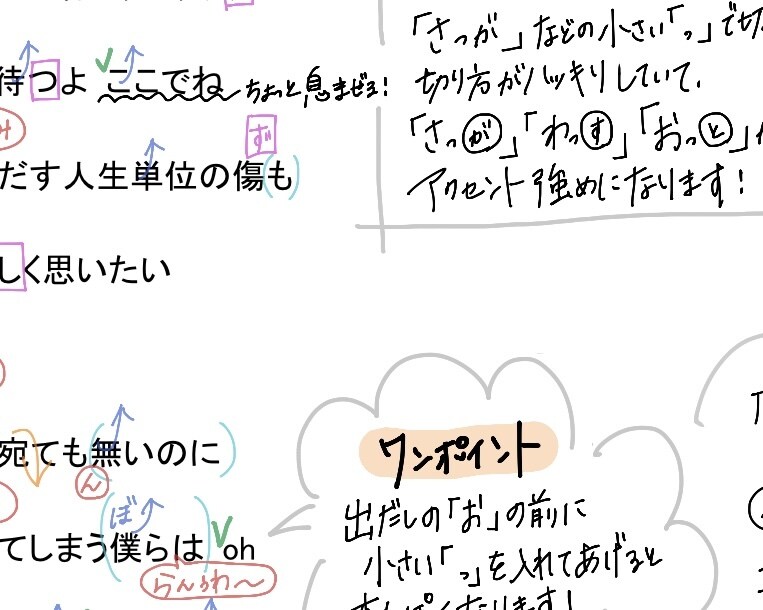 「さっが」などの小さい「っ」で切
切り方がハッキリしていて、
「さっが」「わっす」「おっと」
アクセント強めになります！
待つよ ここでね ちょっと息まぜる！
み
ず
だす人生単位の傷も
しく思いたい
宛ても無いのに
ん
ぼ
てしまう僕らは oh
らんらわ〜
ワンポイント
出だしの「お」の前に
小さい「っ」を入れてあげると